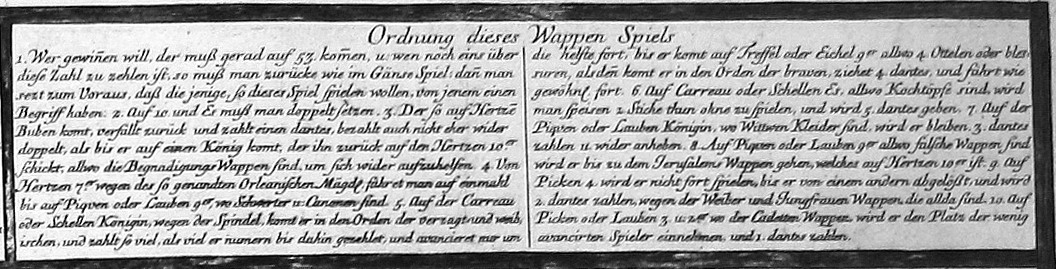 Ordnung dieses Wappen Spiels
1. Wer gewiñen will, der muß gerad auf 53. kom̃en, u. wen noch eins über
diese Zahl zu zehlen ist, so muß man zurücke wie im Gänse Spiel: dañ man
sezt zum Voraus, daß die jenige, so dieses Spiel spielen wollen, von jenem einen
Begriff haben. 2. Auf 10. und Es muß man doppelt setzen. 3. Der so auf Hertzẽ
Buben komt, verfällt zurück und zahlt einen dantes, bezahlt auch nicht eher wider
doppelt, als bis er auf einen König komt, der ihn zurück auf den Hertzen 10er
schickt, allwo die Begnadigungs Wappen sind, um sich wider aufzuhelfen. 4. Von
Hertzen 7er wegen des so genandten Orleanischen Mägdl, fähret man auf einmahl
bis auf Piqven oder Lauben 9er, wo Schwerter u: Canonen sind. 5. Auf der Carreau
oder Schellen Königin, wegen der Spindel, komt er in den Orden der verzagt und weib,
ischen, und zahlt so viel, als viel er numern bis dahin gezehlet, und avancieret nur um
die helfte fort, bis er komt auf Treffel oder Eichel 9er allwo 4. Ottelen oder bles-
suren, als deñ komt er in den Orden der braven, ziehet 4. dantes, und fährt wie
gewöhnl. fort. 6. Auf Carreau oder Schellen Es, allwo Kochtöpfe sind, wird
man speisen 2. Stiche thun ohne zu spielen, und wird 5. dantes geben. 7. Auf der
Piqven oder Lauben Königin, wo Wittwen Kleider sind, wird er bleiben. 3. dantes
zahlen u. wider anheben. 8. Auf Piqven oder Lauben 9er allwo falsche Wappen sind
wird er bis zu dem Jerusalems Wappen gehen, welches auf Hertzen 10er ist. 9. Auf
Picken 4. wird er nicht fort spielen, bis er von einem andern abgelößt, und wird
2. dantes zahlen, wegen der Weiber und Jungfrauen Wappen, die allda sind. 10. Auf
Picken oder Lauben 3. u: 2er wo der Cadetten Wappen wird er den Platz der wenig
avancirten Spieler einnehmen, und 1. dantes zahlen.